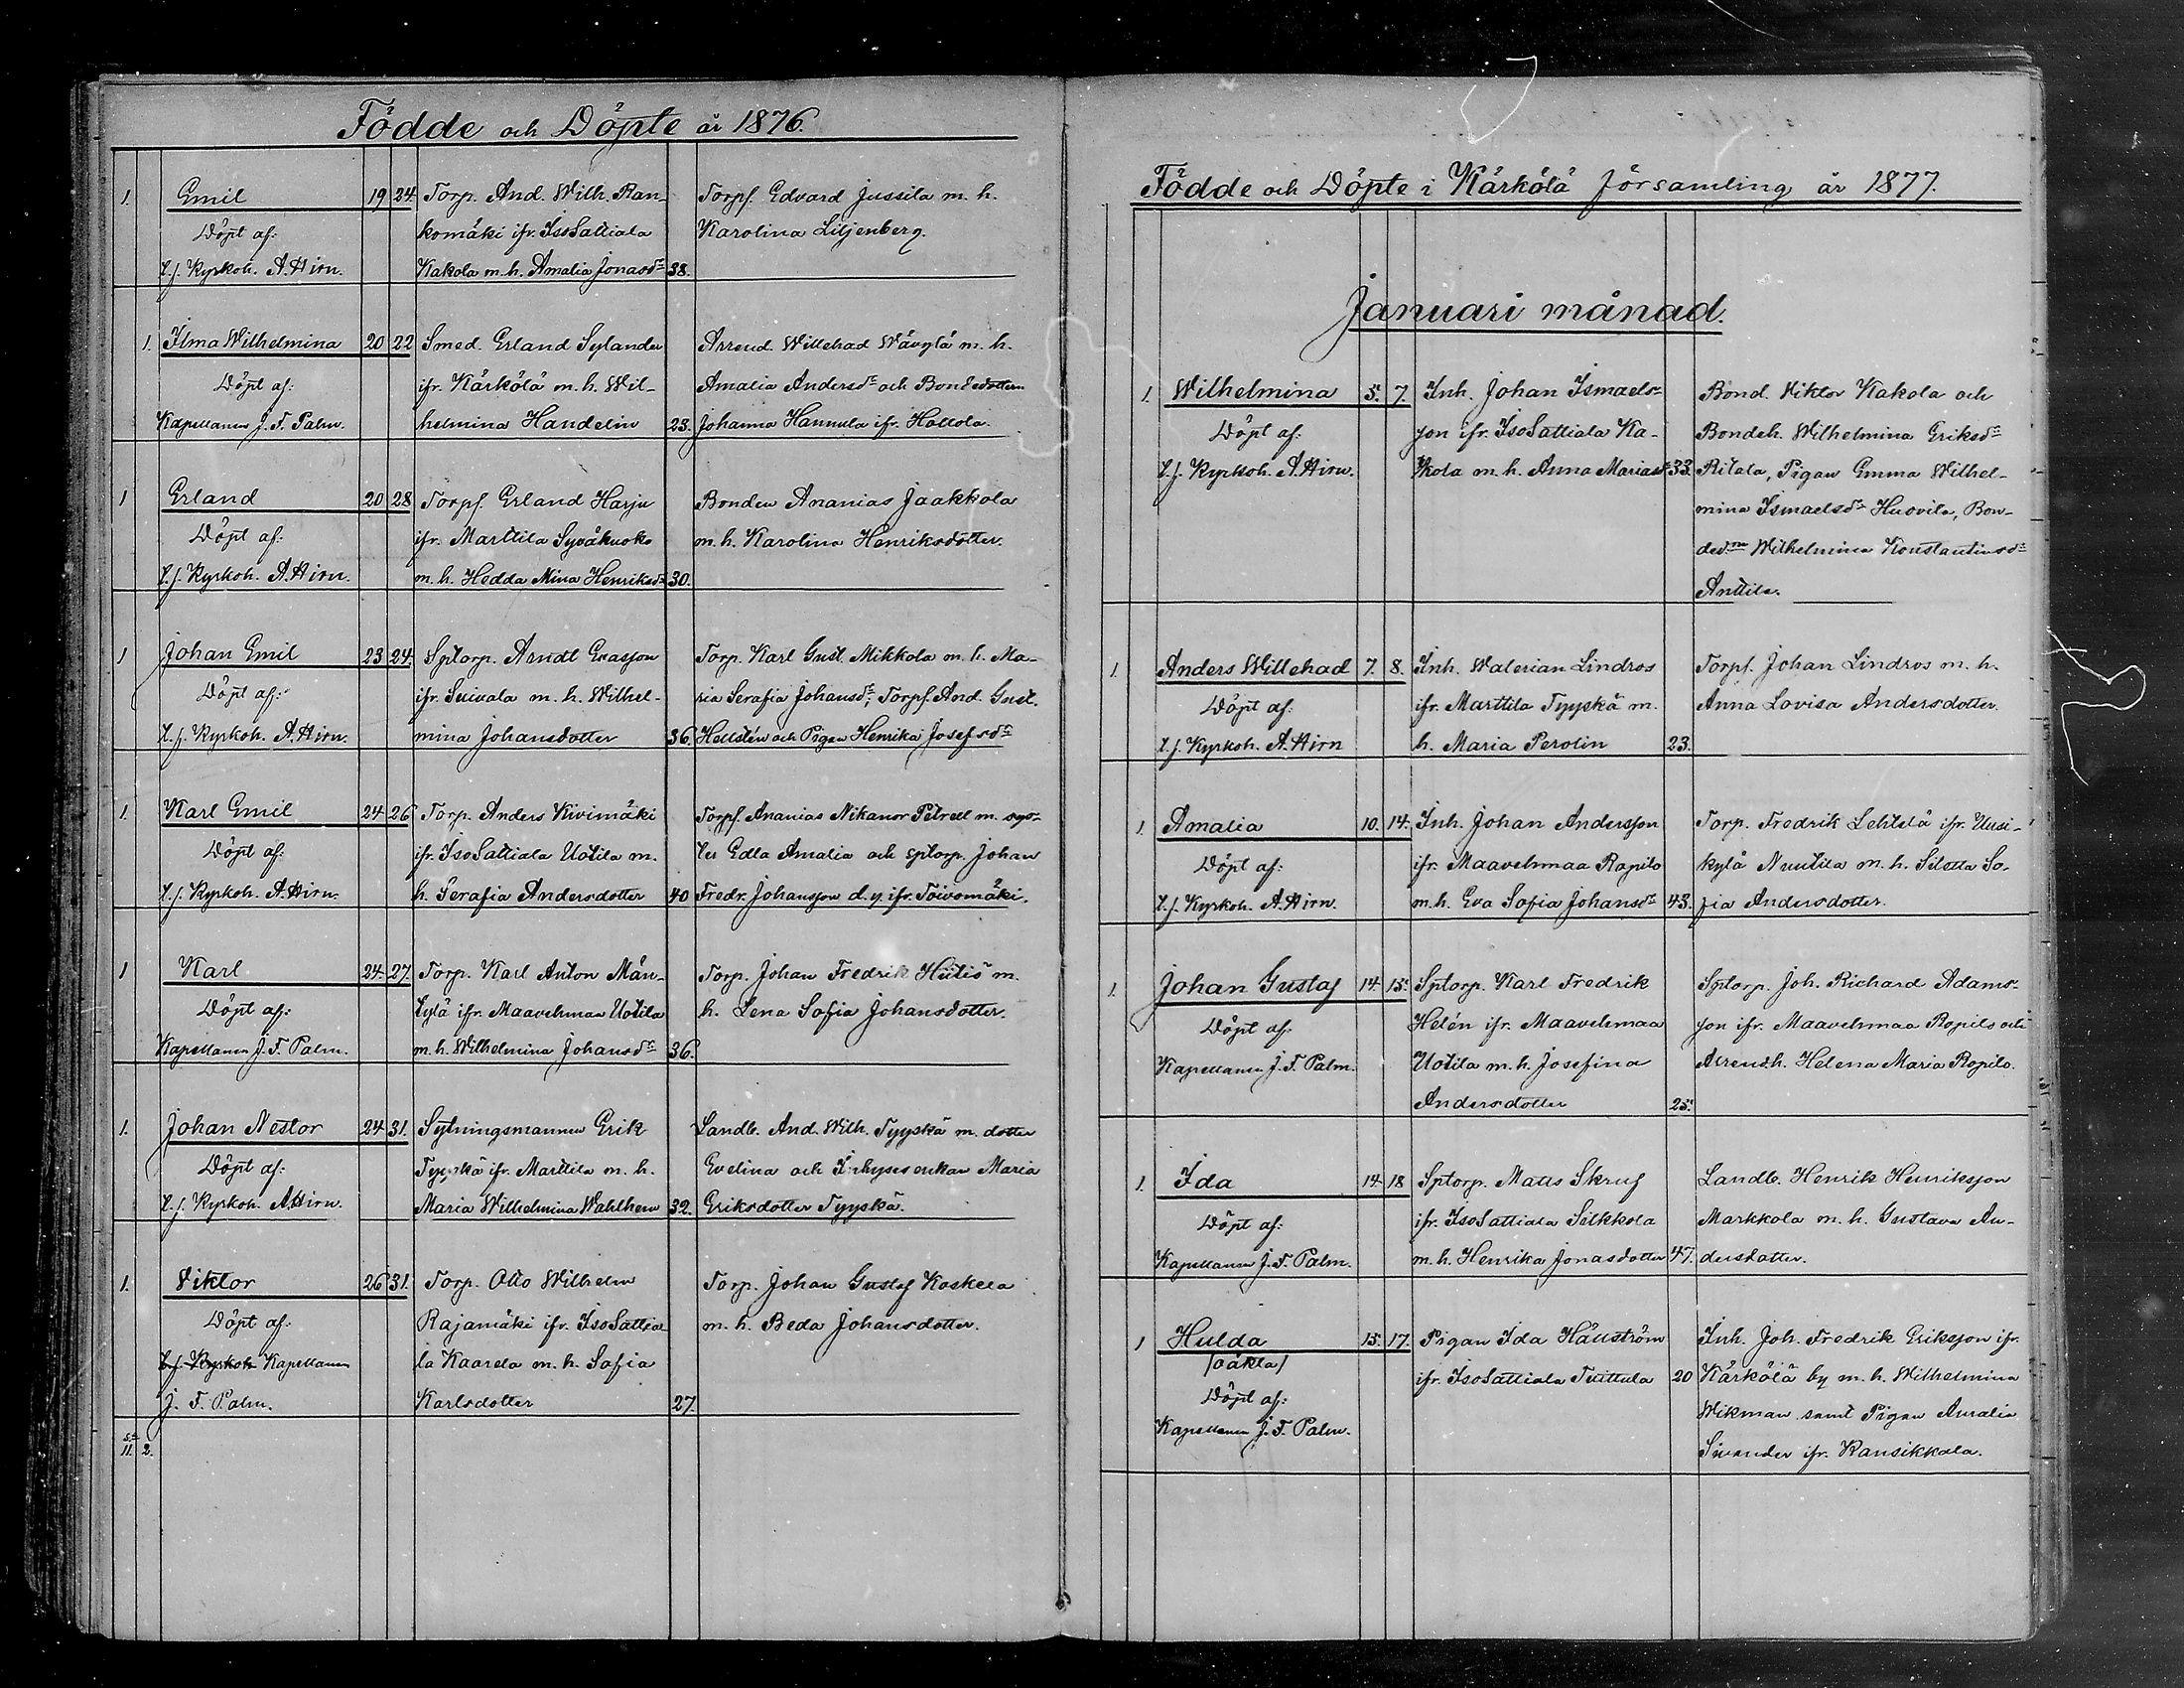 Födde och Döpte år 1876.
1. Emil 19 24. Torp. And. Wilh. Ran- Torpf. Edvard Jussila m. h.
Döpt af: komäki ifr. IsoSattiala Karolina Liljenberg.
t.f. Kyrkoh. A. Hirn. Kakola m. h. Amalia Jonasdr 38.
1. Ilma Wilhelmina 20 22 Smed. Erland Sylander Arrend. Willehad Wävylä m. h.
Döpt af: ifr. Kärkölä m. h. Wil- Amalia Andersdr och Bondedottern
Kapellanen J. F. Palm. helmina Handelin 23. Johanna Hannula ifr. Hollola.
1 Erland 20 28 Torpf. Erland Harju Bonden Ananias Jaakkola
Döpt af: ifr. Marttila Syväkuoko m. h. Karolina Henriksdotter.
t.f. Kyrkoh. A. Hirn. m. h. Hedda Mina Henriksdr 30.
1 Johan Emil 23 24. Sptorp. Arndt Erasson Torp. Karl Gust. Mikkola m. h. Ma-
Döpt af: ifr. Suivala m. h. Wilhel- ria Serafia Johansdr; Torpf. And. Gust.
t.f. Kyrkoh. A. Hirn. mina Johansdotter 36. Hellstén och Pigan Henrika Josefsdr
1. Karl Emil 24 26 Torp. Anders Kivimäki Torpf. Ananias Nikanor Petrell m. sys-
Döpt af: ifr. IsoSattiala Uotila m. ter Edla Amalia och sptorp. Johan
t.f. Kyrkoh. A. Hirn. h. Serafia Andersdotter 40 Fredr. Johansson d. y. ifr. Toivomäki.
1 Karl 24. 27. Torp. Karl Anton Män- Torp. Johan Fredrik Hiitiö m.
Döpt af: tylä ifr. Maavehmaa Uotila h. Lena Sofia Johansdotter.
Kapellanen J. F. Palm. m. h. Wilhelmina Johansdr 36.
1. Johan Nestor 24 31. Sytningsmannen Erik Landb. And. Wilh. Tyyskä m. dotter
Döpt af: Tyyskä ifr. Marttila m. h. Evelina och Inhysesenkan Maria
t.f. Kyrkoh. A. Hirn. Maria Wilhelmina Wahlhem 32. Eriksdotter Tyyskä.
1. Viktor 26 31. Torp. Otto Wilhelm Torp. Johan Gustaf Koskela
Döpt af: Rajamäki ifr. IsoSattia- m. h. Beda Johansdotter.
t.f. Kyrkoh. Kapellanen la Kaarela m. h. Sofia
J. F. Palm. Karlsdotter 27.
11. 2.
Födde och Döpte i Kärkölä församling år 1877.
Januari månad.
1. Wilhelmina 5. 7. Inh. Johan Ismaels- Bond. Viktor Kakola och
Döpt af: son ifr. IsoSattiala Ka- Bondeh. Wilhelmina Eriksdr
t.f. Kyrkoh. A. Hirn. kola m. h. Anna Mariasdr 33. Ritala, Pigan Emma Wilhel-
mina Ismaelsdr Huovila, Bon-
ded:rn Wilhelmina Konstantinsdr
Anttila.
1. Anders Willehad 7. 8. Inh. Walerian Lindros Torpf. Johan Lindros m. h.
Döpt af: ifr. Marttila Tyyskä m. Anna Lovisa Andersdotter.
t.f. Kyrkoh. A. Hirn h. Maria Perolin 23.
1. Amalia 10. 14. Inh. Johan Andersson Torp. Fredrik Lehtelä ifr. Uusi-
Döpt af: ifr. Maavehmaa Ropilo kylä Nuutila m. h. Silotta So-
t.f. Kyrkoh. A. Hirn. m. h. Eva Sofia Johansdr 43. fia Andersdotter.
1. Johan Gustaf 14. 15. Sptorp. Karl Fredrik Sptorp. Joh. Richard Adams-
Döpt af: Helén ifr. Maavehmaa son ifr. Maavehmaa Ropilo och
Kapellanen J. F. Palm. Uotila m. h. Josefina Arrendh. Helena Maria Ropilo.
Andersdotter 25.
1. Ida 14. 18 Sptorp. Matts Skruf Landb. Henrik Henriksson
Döpt af: ifr. IsoSattiala Silkkola Markkola m. h. Gustava An-
Kapellanen J. F. Palm. m. h. Henrika Jonasdotter 47. dersdotter.
1 Hulda 15. 17. Pigan Ida Hällström Inh. Joh. Fredrik Eriksson ifr.
/oäkta/ ifr. IsoSattiala Tuittula 20 Kärkölä by m. h. Wilhelmina
Döpt af: Wikman samt Pigan Amalia
Kapellanen J. F. Palm. Sivander ifr. Kansikkala.